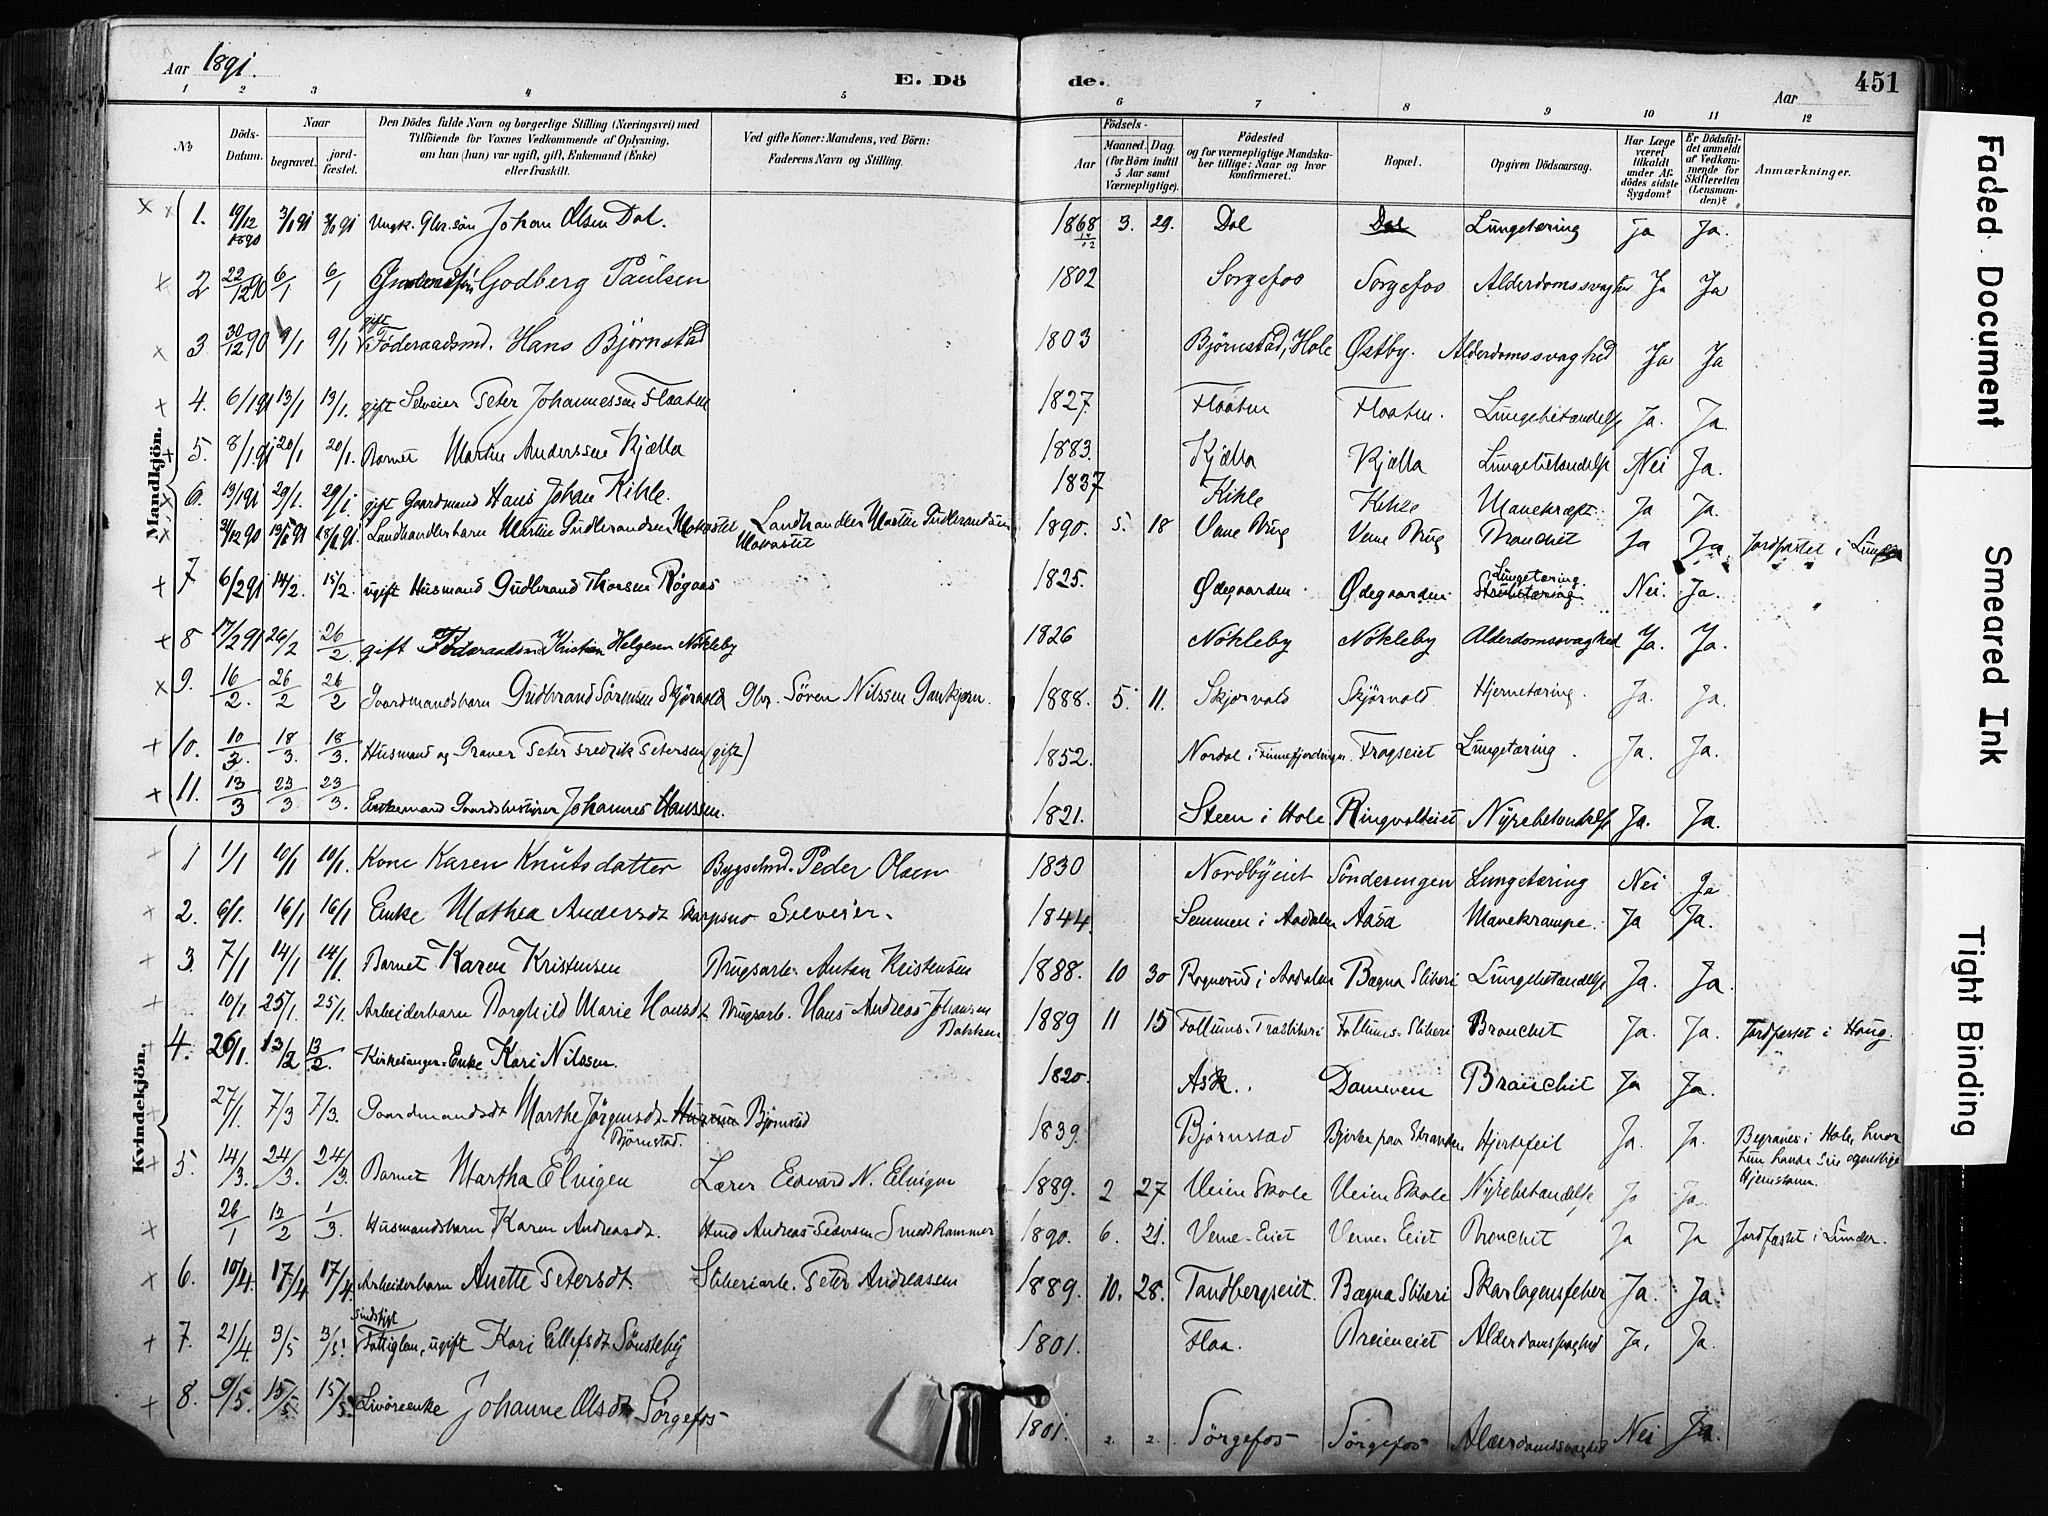 Aar 1891. E. Dö de. Aar 451
1 2 3 4 5 6 7 8 9 10 11 12
№ Döds-Datum. Naar begravet. jord-fæstet. Den Dödes fulde Navn og borgerlige Stilling (Næringsvei) med Tilföiende for Voxnes Vedkommende af Oplysning, om han (hun) var ugift, gift, Enkemand (Enke) eller fraskilt. Ved gifte Koner: Mandens, ved Börn: Faderens Navn og Stilling. Födsels- Aar Maaned. Dag. (for Börn indtil 5 Aar samt Værnepligtige). Födested og for værnepligtige Mandska-ber tillige: Naar og hvor konfirmeret. Bopæl. Opgiven Dödsaarsag. Har Læge været tilkaldt under Af-dödes sidste Sygdom? Er Dödsfal-det anmeldt af Vedkom-mende for Skifteretten (Lensman-den)? Anmærkninger.
Mandkjön.
1. 19/12 1890 3/1 91 3/1 91 Ungk. Gbr. sön Johan Olsen Dal. 1868 3. 29. Dal Dal Lungetæring Ja Ja.
2 22/12 90 6/1 6/1 Godberg Paulsen 1802 Sorgefos Sorgefos Alderdomssvaghed Ja Ja
3 30/12 90 9/1 9/1 gift Föderaadsmd. Hans Björnstad 1803 Björnstad, Hole Østby. Alderdomssvaghed Ja Ja
4. 6/1 91 13/1 13/1. gift Selveier Peter Johannessen Flaaten 1827. Flaaten Flaaten. Lungebetændelse Ja. Ja
5. 8/1 91 20/1 20/1. Barnet Martin Anderssen Kjælla 1883. Kjælla Kjælla Lungebetændelse Nei Ja.
6. 13/1 91 29/1. 29/1. gift Gaardmand Hans Johan Kihle. 1837 Kihle Kihle Mavekræft. Ja Ja.
31/12 90 Landhandlerbarn Martin Gudbrandsen Mokastet Landhandler Martin Gudbrandsen Mokastet 1890. 5. 18 Verne Brug Verne Brug Bronchit Ja Ja Jordfæstet i Lunder
7 6/2 91 14/2. 15/2. ugift Husmand Gudbrand Thorsen Rögaas 1825. Ødegaarden Ødegaarden Lungetæring. Nei. Ja.
8 17/2 91 26/2 26/2 gift Föderaadsm. Kristian Helgesen Nökleby 1826 Nökleby Nökleby Alderdomssvaghed Ja. Ja.
9. 16/2. 26/2 26/2 Gaardmandsbarn Gudbrand Sörensen Skjörvold Gbr. Sören Nilssen 1888. 5. 11. Skjorvold Skjörvold Hjernetæring. Ja. Ja.
10. 10/3. 18/3. 18/3. Husmand og Graver Peter Fredrik Petersen (gift) 1852. Nordal i Frognseiet Lungetæring. Ja. Ja.
11. 13/3 23/3 23/3. Enkemand Johannes Hanssen. 1821. Steen i Hole Ringvoldeiet Nyrebetændelse Ja. Ja.
Kvindekjön.
1 1/1 10/1 10/1. Kone Karen Knutsdatter Bygselmd. Peder Olsen 1830 Nordbyeiet Sönderengen Lungetæring Nei Ja
2. 6/1. 16/1 16/1 Enke Mathea Andersdt Skarpsno Selveier. 1844. Semmen i Aadalen Aasa Mavekrampe. Ja Ja.
3. 7/1 14/1 14/1. Barnet Karen Kristensen Brugsarb. Anton Kristensen 1888. 10 30 Rognerud i Aadalen Bægna Sliberi Lungebetændelse Ja. Ja.
10/1. 25/1. 25/1. Arbeiderbarn Borghild Marie Hansdt. Brugsarb. Hans Andreas Johansen Bakken 1889 11 15 Follums-Træsliberi Follums-Sliberi Bronchit Ja. Ja. Jordfæstet i Haug.
4. 26/1. 13/2 13/2. Kirkesanger-Enke Kari Nilssen. 1820. Ask. Damoven Bronchit Ja Ja.
27/1. 7/3 7/3. Gaardmandsdt Marthe Jörgensdt. Björnstad. Björnstad 1839. Björnstad Bjerke paa Hjertefeil Ja. Ja. Begraves i Hole, hvor hun havde sin egentlige Hjemstavn.
5. 14/3. 24/3. 24/3. Barnet Martha Elvigen Lærer Edvard N. Elvigen 1889. 2 27 Veien Skole Veien Skole Nyrebetændelse Ja Ja.
26/1 12/2 1/3. Husmandsbarn Karen Andreasdt. Hmd Andreas Pedersen Smedshammer 1890. 6. 21. Verne-Eiet Verne-Eiet Bronchit Ja Ja Jordfæstet i Lunder.
6. 10/4. 17/4 17/4. Arbeiderbarn Anette Petersdt Sliberiarb. Peter Andreasen 1889. 10. 28. Tandbergseiet. Bægna Sliberi Skarlagensfeber Ja. Ja
7. 21/4. 3/5 3/5. sindssygt Fattiglem, ugift Kari Ellefsdt Sönsteby 1801. Flaa. Breieneiet Alderdomssvaghed Ja. Ja.
8. 9/5. 15/5 15/5. Livöreenke Johanne Olsdt Sörgefos 1801. 2. 2. Sörgefos Sörgefos Alderdomssvaghed Nei Ja.
Faded Document
Smeared Ink
Tight Binding